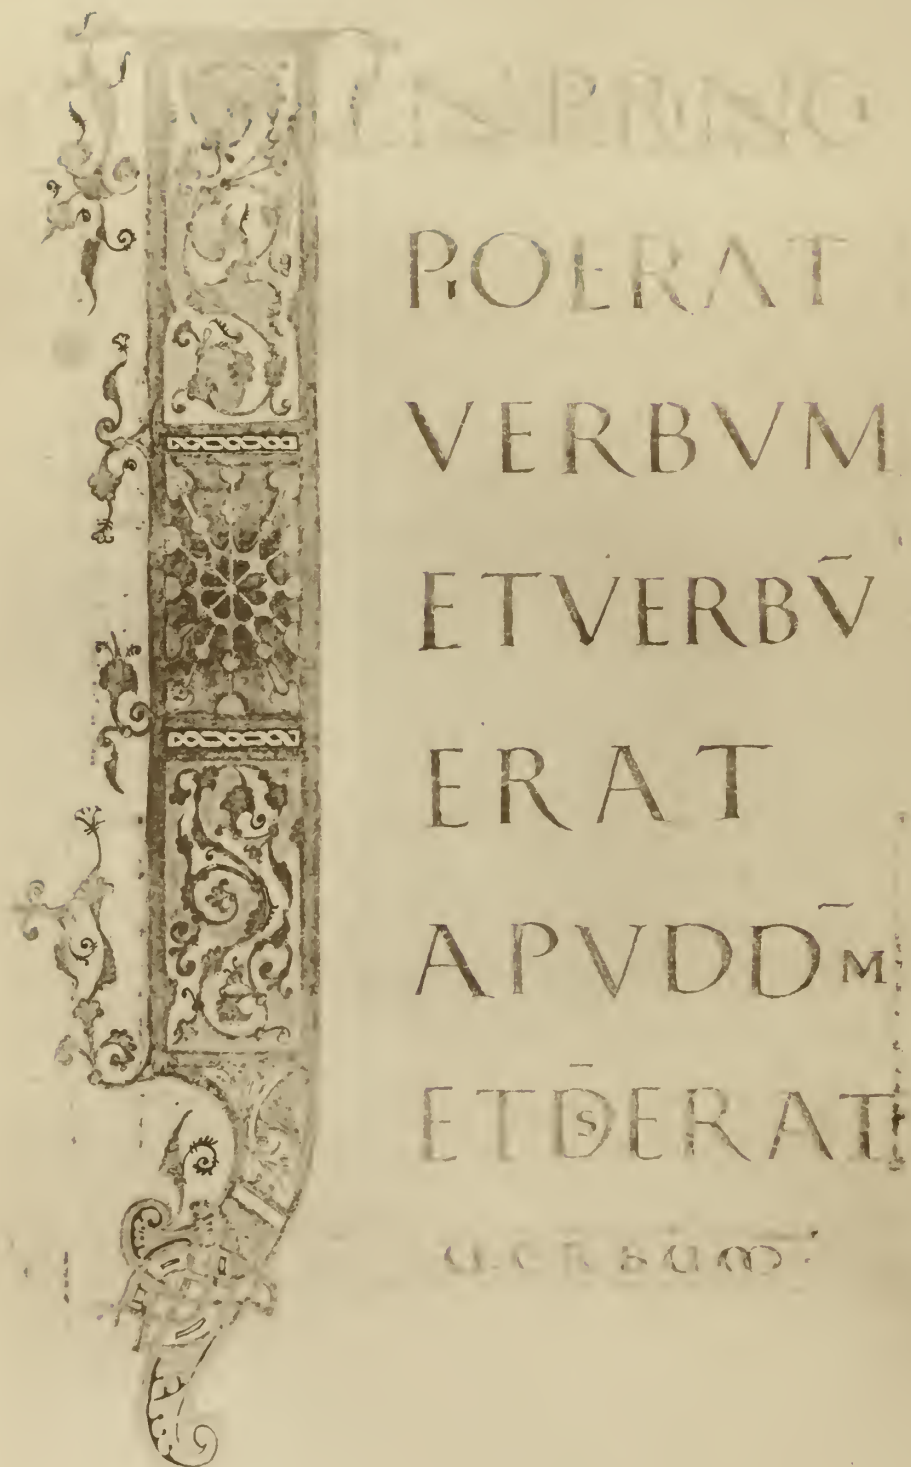 IN PRINCI
PIOERAT
VERBVM
ETVERBV̄
ERAT
APVDD̄M
ETD̄SERAT
uerbum